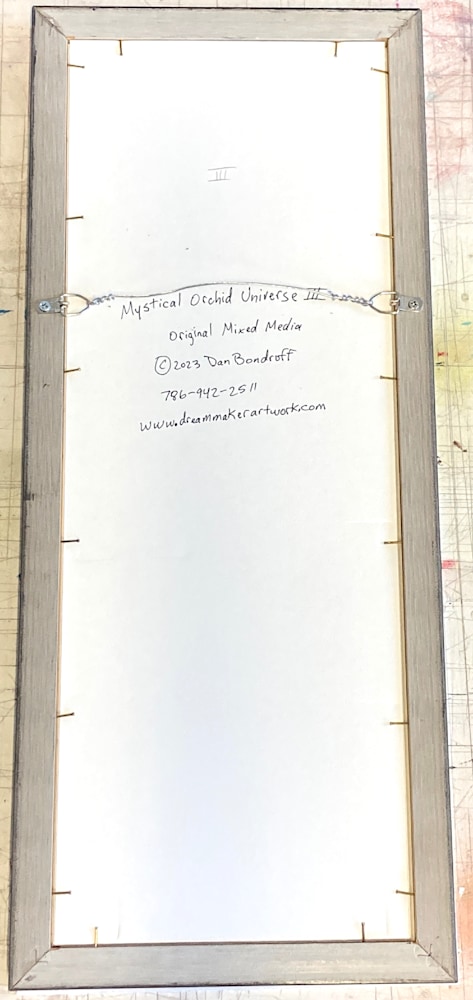 III
Mystical Orchid Universe III
Original Mixed Media
©2023 Dan Bondroff
786-942-2511
www.dreammakerartwork.com